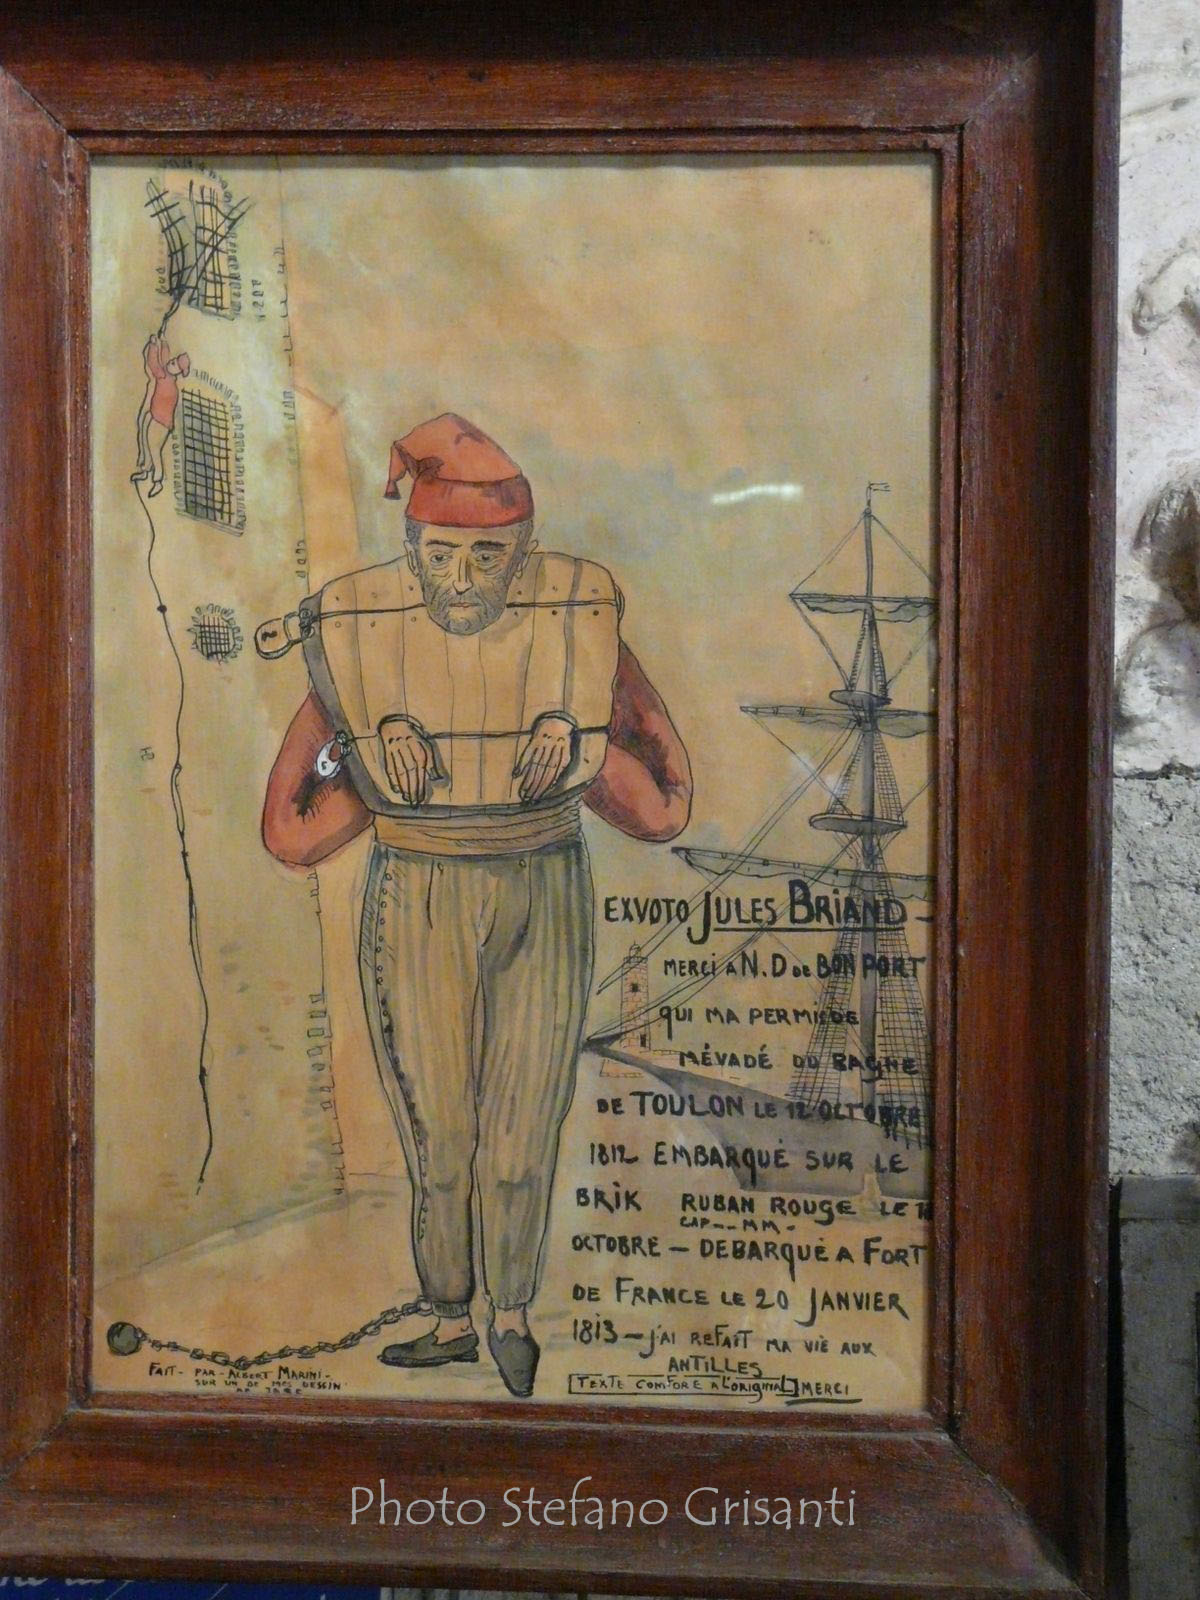 EXVOTO JULES BRIAND -
MERCI A N.D DE BON PORT
QUI MA PERMIS DE
MÉVADÉ DU BAGNE
DE TOULON LE 12 OCTOBRE
1812 EMBARQUÉ SUR LE
BRIK RUBAN ROUGE LE
CAP -- MM -
OCTOBRE - DEBARQUÉ A FORT
DE FRANCE LE 20 JANVIER
1813 - J'AI REFAIT MA VIE AUX
ANTILLES
[TEXTE COMFORE A L'ORIGINAL] MERCI
FAIT - PAR - ALBERT MARINI -
SUR UN DE MES DESSIN
Photo Stefano Grisanti